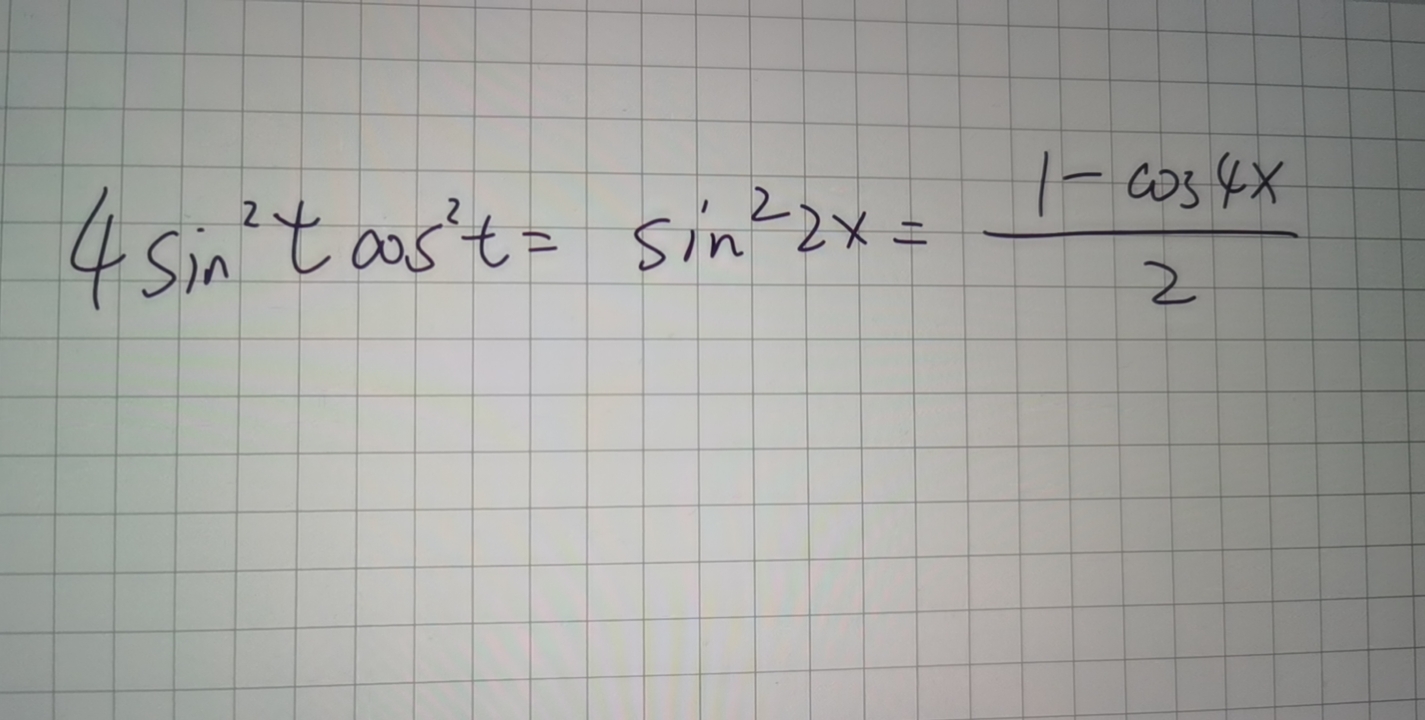 4 sin² t cos² t = sin² 2x = (1 - cos 4x)/2